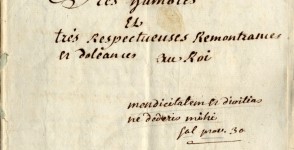 très humbles
Et
très Respectueuses Remontrances
et doléances au Roi
mendicitatem et divitias
ne dederis mihi
Sal prov. 30